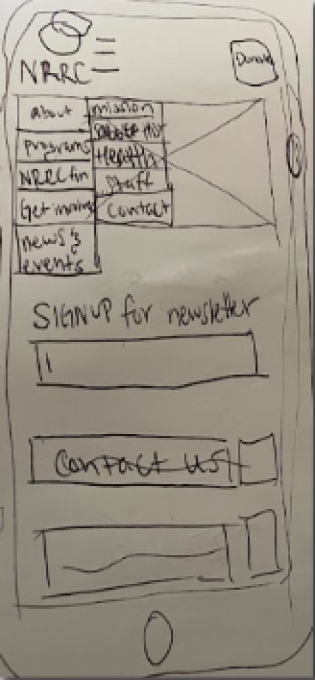 NRRC
Donate
about
programs
NRRC fin
Get involved
news &
events
mission
Health
Staff
Contact
SIGNUP for newsletter
Contact US